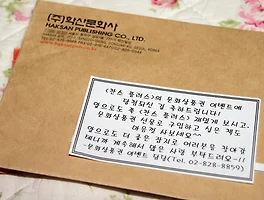 (주)학산문화사
HAKSAN PUBLISHING CO., LTD.
<찬스 플러스>의 문화상품권 이벤트에
당첨되신 걸 축하드립니다!
앞으로도 쭉 <찬스 플러스> 재밌게 보시고,
문화상품권 선물로 구입하고 싶은 책도
마음껏 사보세요~
앞으로도 더 좋은 잡지로 여러분을 찾아갈
테니까 계속해서 많은 사랑 부탁드려요~!!
-문화상품권 이벤트 담당(Tel. 02-828-8859)